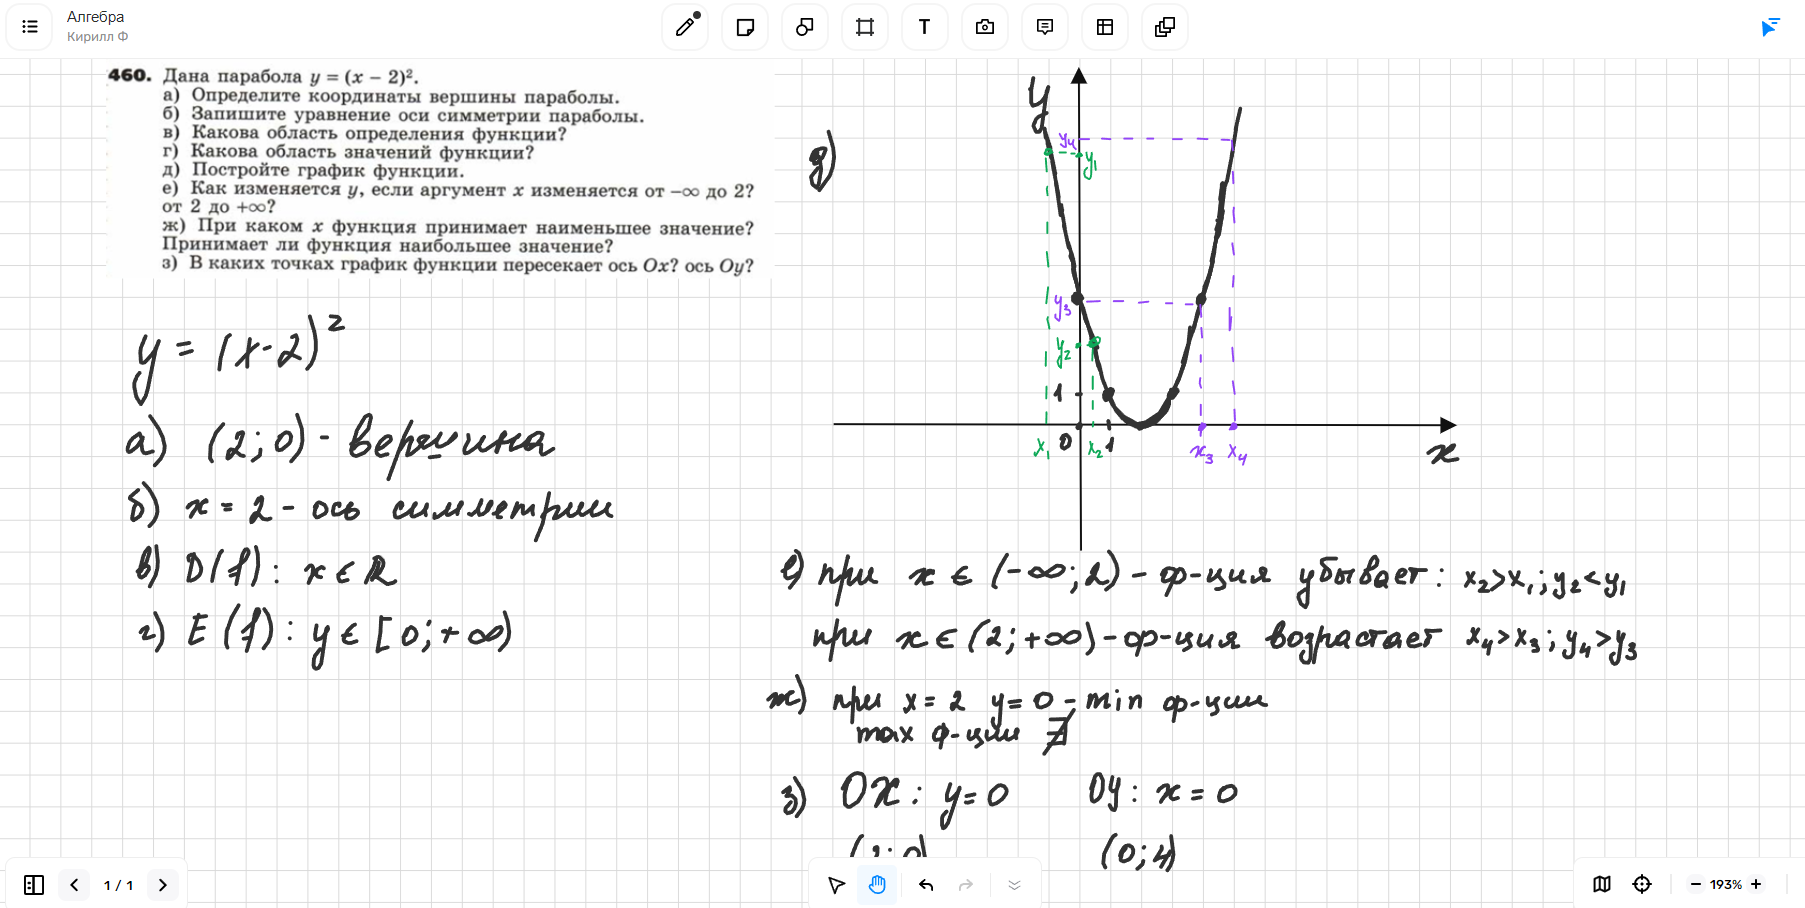 Алгебра
Кирилл Ф
T
460. Дана парабола y = (x − 2)².
а) Определите координаты вершины параболы.
б) Запишите уравнение оси симметрии параболы.
в) Какова область определения функции?
г) Какова область значений функции?
д) Постройте график функции.
е) Как изменяется y, если аргумент x изменяется от −∞ до 2?
от 2 до +∞?
ж) При каком x функция принимает наименьшее значение?
Принимает ли функция наибольшее значение?
з) В каких точках график функции пересекает ось Ox? ось Oy?
y = (x-2)²
а) (2;0) - вершина
б) x = 2 - ось симметрии
в) D(f): x ∈ R
г) E(f): y ∈ [0;+∞)
д)
y
y₄
y₁
y₃
y₂
1
0
1
x₁
x₂
x₃
x₄
x
е) при x ∈ (-∞;2) - ф-ция убывает: x₂>x₁; y₂<y₁
при x ∈ (2;+∞) - ф-ция возрастает x₄>x₃; y₄>y₃
ж) при x = 2 y = 0 - min ф-ции
max ф-ции ∄
з) OX: y=0 OY: x=0
(2;0) (0;4)
1 / 1
193%